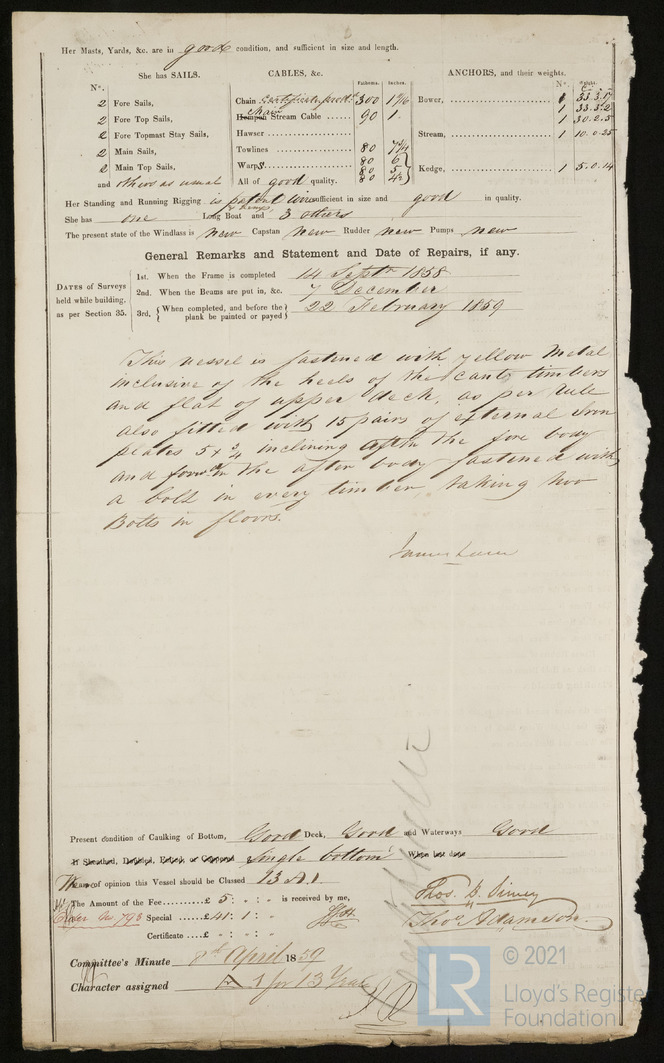 Her Masts, Yards, &c. are in good condition, and sufficient in size and length.
She has SAILS.
N°.
2 Fore Sails,
2 Fore Top Sails,
2 Fore Topmast Stay Sails,
2 Main Sails,
2 Main Top Sails,
and others as usual
CABLES, &c.
Fathoms. Inches.
Chain 300
Hempen Chain Stream Cable ...... 90 1
Hawser
Towlines 80
Warps 80 6
80 5
80
All of good quality.
ANCHORS, and their weights.
N° Weight.
Bower, 1
1
1 30.2.5
Stream, 1 10.0.25
Kedge, 1 5.0.14
Her Standing and Running Rigging is patent wire & hemp sufficient in size and good in quality.
She has one Long Boat and 3 others
The present state of the Windlass is New Capstan New Rudder New Pumps New
General Remarks and Statement and Date of Repairs, if any.
DATES of Surveys held while building, as per Section 35.
1st. When the Frame is completed 14 Septr 1858
2nd. When the Beams are put in, &c. 7 December
3rd, { When completed, and before the plank be painted or payed } 22 February 1859
This vessel is fastened with yellow Metal
inclusive of the heels of the cant timbers
and flat of upper deck, as per rule
also fitted with 15 pairs of external Iron
plates 5 x 3/4 inclining aft in the fore body
and forwd in the after body fastened with
a bolt in every timber taking two
Bolts in floors.
James
Present condition of Caulking of Bottom, Good Deck, Good and Waterways Good
If Sheathed, Doubled, Felted, or Coppered Single bottom When last done
We are of opinion this Vessel should be Classed 13 A 1
The Amount of the Fee..........£ 5 : : is received by me,
No 796 Special .....£ 41 : 1 :
Certificate .. £ : :
Thos. B.
Thos Adamson
Committee's Minute 8th April 1859
Character assigned A 1 for 13 Years
© 2021
LR
Lloyd's Register
Foundation